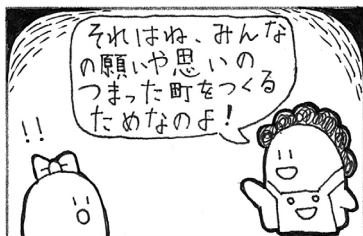 それはね、みんな
の願いや思いの
つまった町をつくる
ためなのよ！
!!